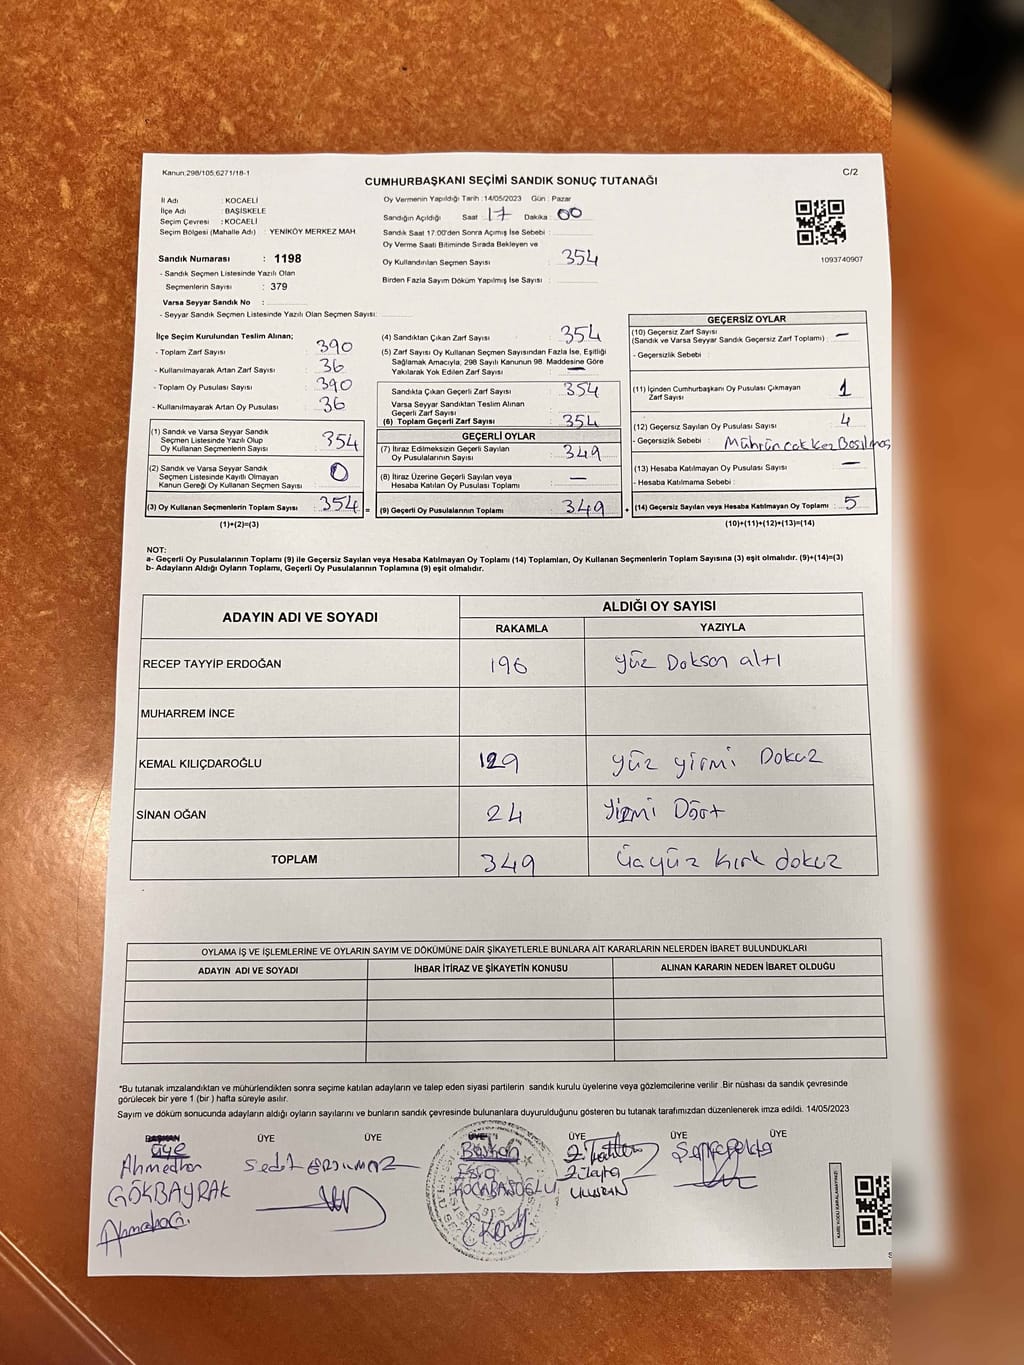 Kanun:298/105,6271/18-1
C/2
CUMHURBAŞKANI SEÇİMİ SANDIK SONUÇ TUTANAĞI
İl Adı : KOCAELİ
İlçe Adı : BAŞİSKELE
Seçim Çevresi : KOCAELİ
Seçim Bölgesi (Mahalle Adı) : YENİKÖY MERKEZ MAH.
Sandık Numarası : 1198
- Sandık Seçmen Listesinde Yazılı Olan
Seçmenlerin Sayısı : 379
Varsa Seyyar Sandık No :
- Seyyar Sandık Seçmen Listesinde Yazılı Olan Seçmen Sayısı:
Oy Vermenin Yapıldığı Tarih :14/05/2023 Gün : Pazar
Sandığın Açıldığı Saat 17 Dakika : 00
Sandık Saat 17:00'den Sonra Açılmış İse Sebebi :
Oy Verme Saati Bitiminde Sırada Bekleyen ve
Oy Kullandırılan Seçmen Sayısı : 354
Birden Fazla Sayım Döküm Yapılmış İse Sayısı :
1093740907
İlçe Seçim Kurulundan Teslim Alınan;
- Toplam Zarf Sayısı : 390
- Kullanılmayarak Artan Zarf Sayısı : 36
- Toplam Oy Pusulası Sayısı : 390
- Kullanılmayarak Artan Oy Pusulası : 36
(1) Sandık ve Varsa Seyyar Sandık
Seçmen Listesinde Yazılı Olup
Oy Kullanan Seçmenlerin Sayısı : 354
(2) Sandık ve Varsa Seyyar Sandık
Seçmen Listesinde Kayıtlı Olmayan
Kanun Gereği Oy Kullanan Seçmen Sayısı : 0
(3) Oy Kullanan Seçmenlerin Toplam Sayısı : 354 =
(1)+(2)=(3)
(4) Sandıktan Çıkan Zarf Sayısı : 354
(5) Zarf Sayısı Oy Kullanan Seçmen Sayısından Fazla İse, Eşitliği
Sağlamak Amacıyla; 298 Sayılı Kanunun 98. Maddesine Göre
Yakılarak Yok Edilen Zarf Sayısı : —
Sandıkta Çıkan Geçerli Zarf Sayısı : 354
Varsa Seyyar Sandıktan Teslim Alınan
Geçerli Zarf Sayısı :
(6) Toplam Geçerli Zarf Sayısı : 354
GEÇERLİ OYLAR
(7) İtiraz Edilmeksizin Geçerli Sayılan
Oy Pusulalarının Sayısı : 349
(8) İtiraz Üzerine Geçerli Sayılan veya
Hesaba Katılan Oy Pusulası Toplamı : —
(9) Geçerli Oy Pusulalarının Toplamı : 349 +
GEÇERSİZ OYLAR
(10) Geçersiz Zarf Sayısı
(Sandık ve Varsa Seyyar Sandık Geçersiz Zarf Toplamı) : —
- Geçersizlik Sebebi :
(11) İçinden Cumhurbaşkanı Oy Pusulası Çıkmayan
Zarf Sayısı : 1
(12) Geçersiz Sayılan Oy Pusulası Sayısı : 4
- Geçersizlik Sebebi : Mührün çok kez Basılmas
(13) Hesaba Katılmayan Oy Pusulası Sayısı : —
- Hesaba Katılmama Sebebi :
(14) Geçersiz Sayılan veya Hesaba Katılmayan Oy Toplamı : 5
(10)+(11)+(12)+(13)=(14)
NOT:
a- Geçerli Oy Pusulalarının Toplamı (9) ile Geçersiz Sayılan veya Hesaba Katılmayan Oy Toplamı (14) Toplamları, Oy Kullanan Seçmenlerin Toplam Sayısına (3) eşit olmalıdır. (9)+(14)=(3)
b- Adayların Aldığı Oyların Toplamı, Geçerli Oy Pusulalarının Toplamına (9) eşit olmalıdır.
ADAYIN ADI VE SOYADI
ALDIĞI OY SAYISI
RAKAMLA YAZIYLA
RECEP TAYYİP ERDOĞAN 196 yüz Doksan altı
MUHARREM İNCE
KEMAL KILIÇDAROĞLU 129 yüz yirmi Dokuz
SİNAN OĞAN 24 yirmi Dört
TOPLAM 349 üçyüz kırk dokuz
OYLAMA İŞ VE İŞLEMLERİNE VE OYLARIN SAYIM VE DÖKÜMÜNE DAİR ŞİKAYETLERLE BUNLARA AİT KARARLARIN NELERDEN İBARET BULUNDUKLARI
ADAYIN ADI VE SOYADI İHBAR İTİRAZ VE ŞİKAYETİN KONUSU ALINAN KARARIN NEDEN İBARET OLDUĞU
*Bu tutanak imzalandıktan ve mühürlendikten sonra seçime katılan adayların ve talep eden siyasi partilerin sandık kurulu üyelerine veya gözlemcilerine verilir .Bir nüshası da sandık çevresinde
görülecek bir yere 1 (bir ) hafta süreyle asılır.
Sayım ve döküm sonucunda adayların aldığı oyların sayılarını ve bunların sandık çevresinde bulunanlara duyurulduğunu gösteren bu tutanak tarafımızdan düzenlenerek imza edildi. 14/05/2023
BAŞKAN ÜYE ÜYE ÜYE ÜYE ÜYE ÜYE
üye
Ahmethan
GÖKBAYRAK
Başkan
Esra
KOCABAŞOĞLU